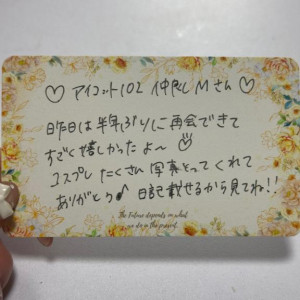 ♡ アイコット102 仲良しMさん ♡
昨日は半年ぶりに再会できて
すごく嬉しかったよ〜
コスプレたくさん写真とってくれて
ありがとう♪ 日記載せるから見てね!!
The Future depends on what
we do in the present.